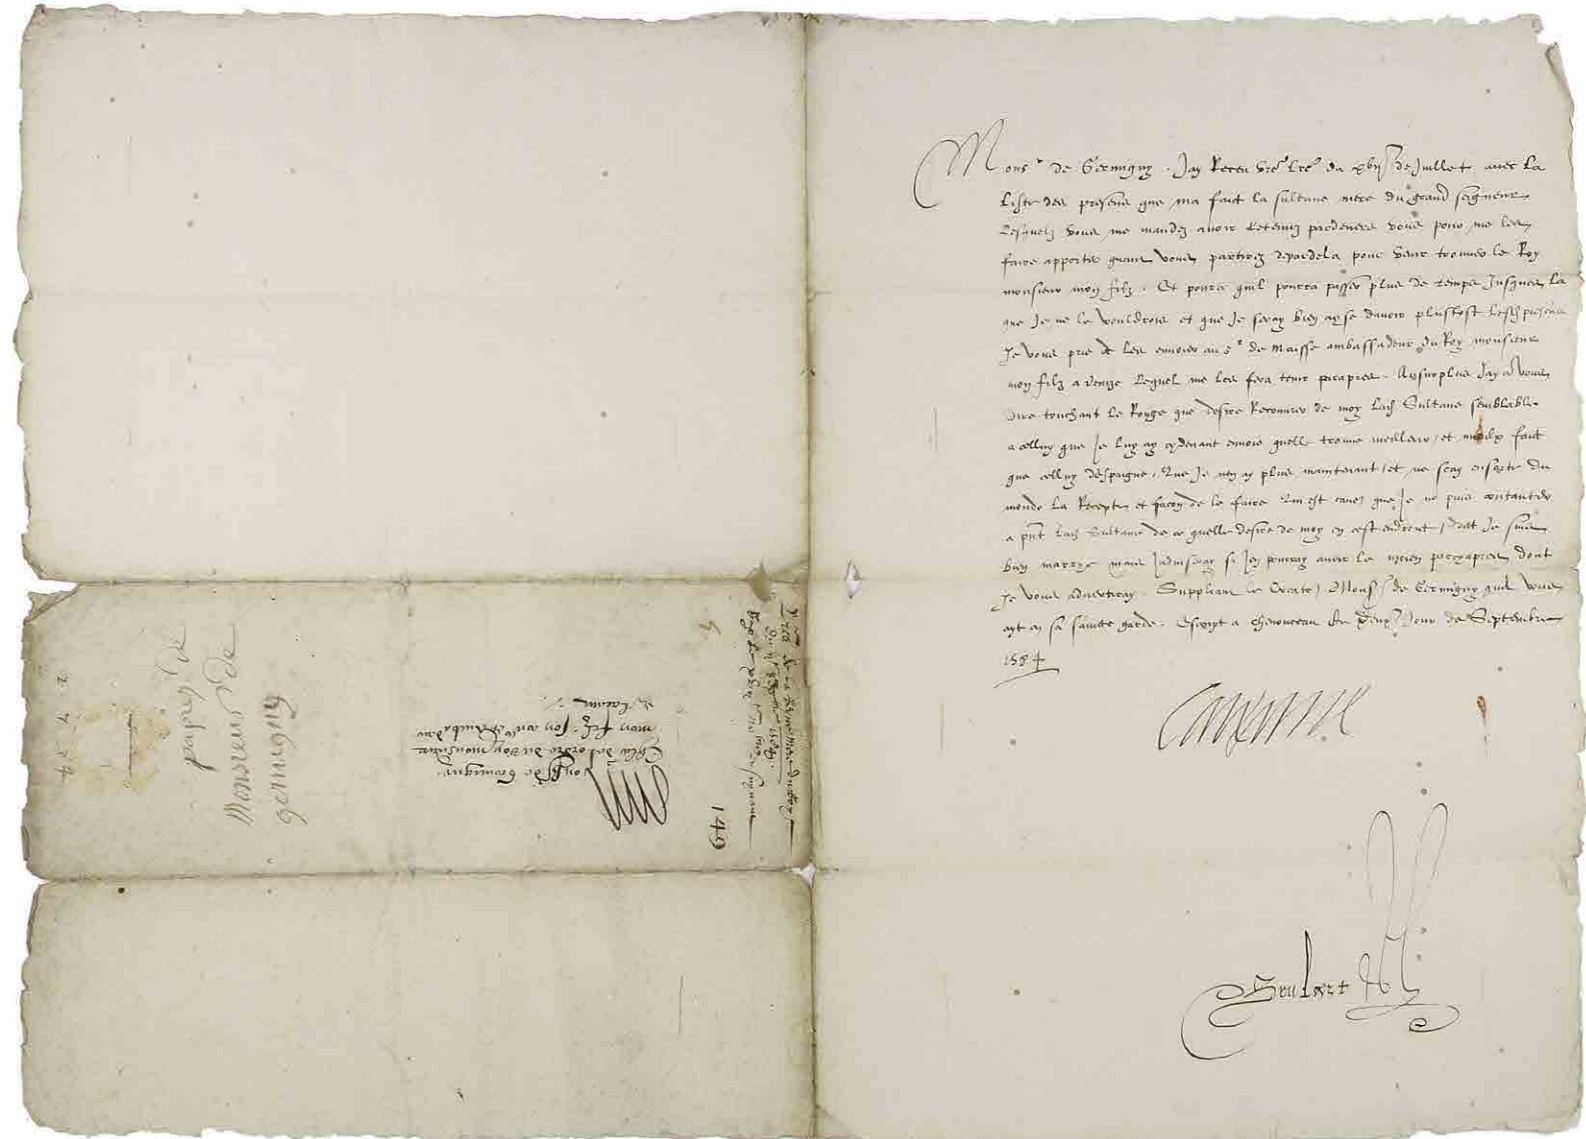 Mons.r de Germigny. Jay Receu vre lre du xbij de Juillet avec la
liste des presens que ma faict la sultane mere du grand seigneur
Lesquelz vous me mandez avoir retenuz pardevers vous pour me les
faire apporter quant vous partirez depardela pour venir trouver le Roy
monsieur mon filz. Et pource quil pourra passer plus de temps Jusques la
que Je ne le vouldrois et que Je seray bien ayse davoir plustost lesd. presens
Je vous prie de les envoier au s.r de Maisse ambassadeur du Roy monsieur
mon filz a Venize Lequel me les fera tenir parapres. Au surplus Jay a vous
dire touchant le Rouge que desire Recouvrer de moy lad. Sultane semblable
a celluy que Je luy ay cydevant envoié quelle trouve meilleur et mieulx faict
que celluy despaigne. Que Je nen ay plus maintenant et ne scay ensorte du
monde la Recepte et facon de le faire Qui est cause que Je ne puis contanter
a pnt lad. Sultane de ce quelle desire de moy en cest endroit, dont Je suis
bien marrye mais Jadviseray si Jen pourray avoir le moien parcyapres dont
Je vous advertiray. Suppliant le Createur Mons.r de Germigny quil vous
ayt en sa saincte garde. Escript a Chenonceau le Jour de Septembre
1584
Caterine
Brulart
Mons.r de Germigny
Cheval.r de lordre du Roy monsieur
mon filz. son ambassadeur
en Levant
149
papiers de
Monsieur de
germigny